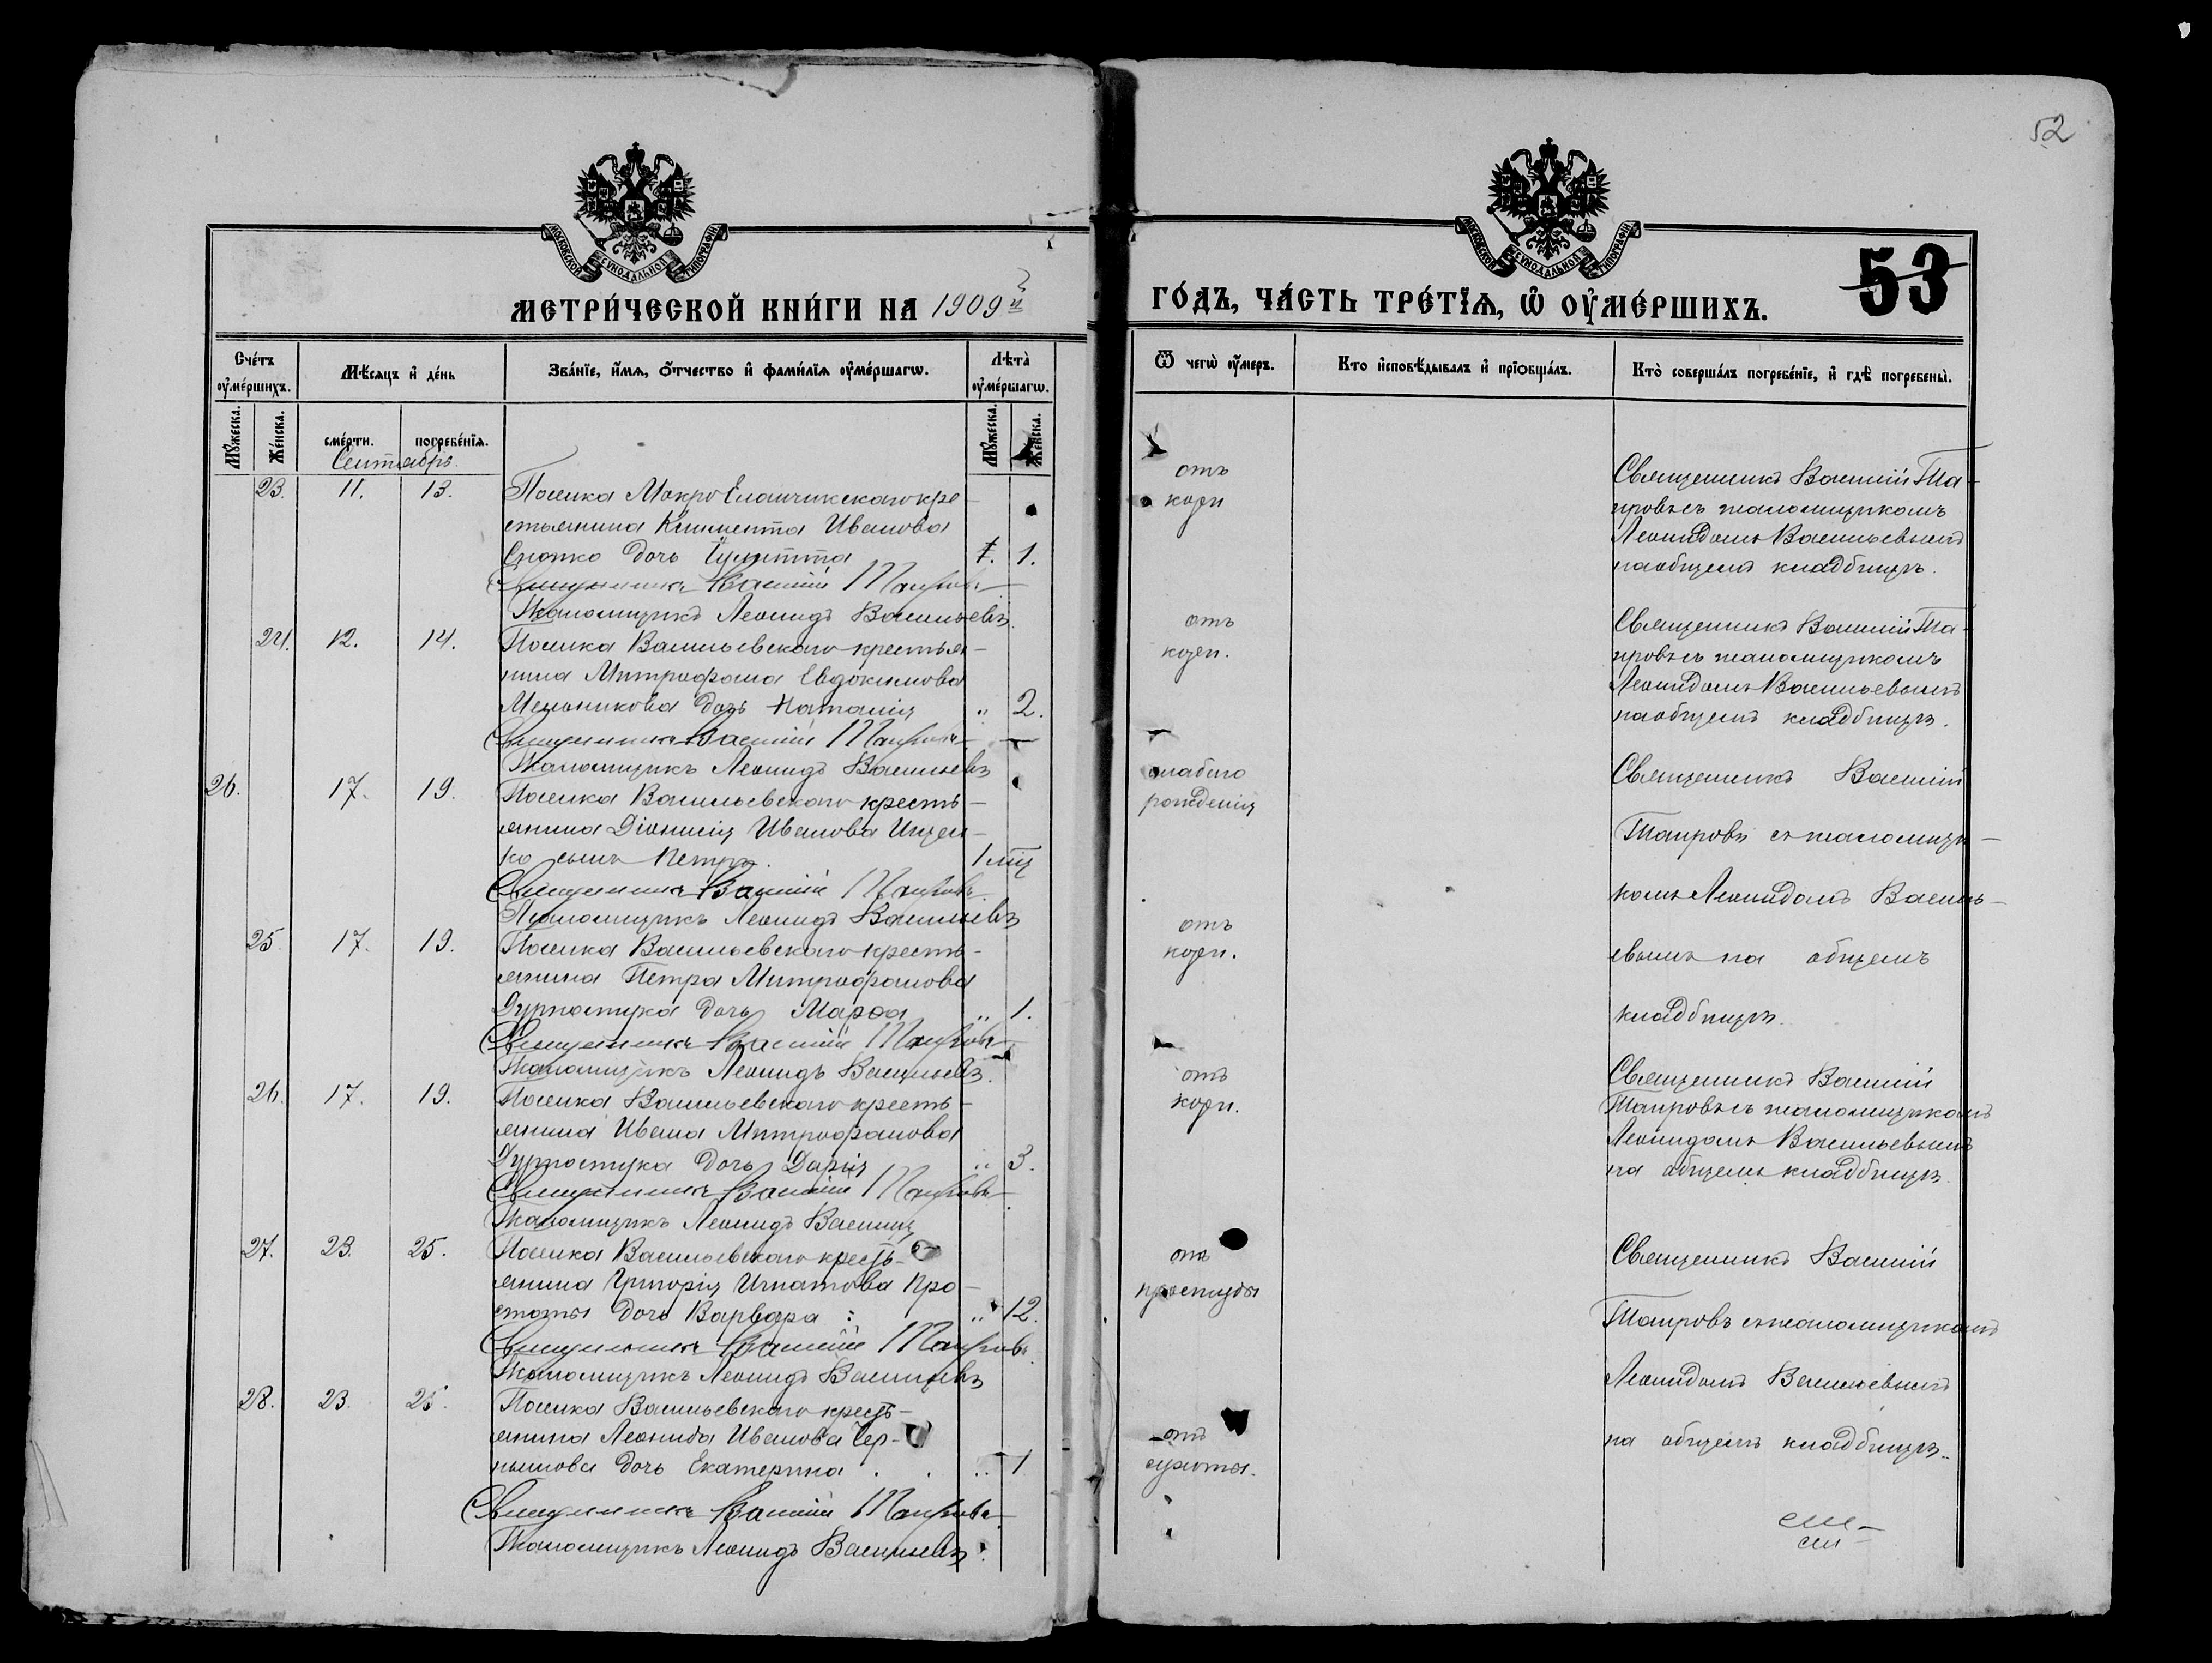 52
53
МОСКОВСКОЙ СѴНОДАЛЬНОЙ ТИПОГРАФІИ
МОСКОВСКОЙ СѴНОДАЛЬНОЙ ТИПОГРАФІИ
МЕТРИ́ЧЕСКОЙ КНИ́ГИ НА 1909й
ГО́ДЪ, ЧА́СТЬ ТРЕ́ТЇѦ, Ѡ҆ ОУ҆МЕ́РШИХЪ.
Сче́тъ оу҆ме́ршихъ.
Мѣ́сяцъ и҆ де́нь
Зва́нїе, и҆́мѧ, ѻ҆́тчество и҆ фами́лїѧ оу҆ме́ршагѡ.
Лѣта̀ оу҆ме́ршагѡ.
Ѿ чегѡ̀ оу҆́меръ.
Кто и҆сповѣ́дывалъ и҆ прїѡбща́лъ.
Кто̀ соверша́лъ погребе́нїе, и҆ гдѣ̀ погребены̀.
Мꙋ́жеска. Же́нска. сме́рти. погребе́нїѧ. Мꙋ́жеска. Же́нска.
Сентябрь.
23. 11. 13. Поселка Мокро Еланчикскаго кре-
стьянина Климента Иванова
дочь 1.
Священникъ Василій Таировъ
Псаломщикъ Леонидъ Васильевъ
отъ
кори
Священникъ Василій Та-
ировъ съ псаломщикомъ
Леонидомъ Васильевымъ
на общемъ кладбищѣ.
24. 12. 14. Поселка Васильевскаго крестья-
нина Митрофана Евдокимова
Мельникова дочь Наталія " 2.
Священникъ Василій Таировъ
Псаломщикъ Леонидъ Васильевъ
отъ
кори.
Священникъ Василій Та-
ировъ съ псаломщикомъ
Леонидомъ Васильевымъ
на общемъ кладбищѣ.
26. 17. 19. Поселка Васильевскаго кресть-
янина Діонисія Иванова Ищен-
ко сынъ Петръ. 1 мц
Священникъ Василій Таировъ
Псаломщикъ Леонидъ Васильевъ
слабаго
рожденія
Священникъ Василій
Таировъ съ псаломщи-
комъ Леонидомъ Василь-
евымъ на общемъ
кладбищѣ.
25 17. 19. Поселка Васильевскаго кресть-
янина Петра Митрофанова
дочь Марфа " 1.
Священникъ Василій Таировъ
Псаломщикъ Леонидъ Васильевъ.
отъ
кори.
26. 17. 19. Поселка Васильевскаго кресть-
янина Ивана Митрофанова
дочь Дарія " 3.
Священникъ Василій Таировъ
Псаломщикъ Леонидъ
отъ
кори.
Священникъ Василій
Таировъ съ псаломщикомъ
Леонидомъ Васильевымъ
на общемъ кладбищѣ.
27. 23. 25. Поселка Васильевскаго кресть-
янина Григорія Игнатова Про-
дочь Варвара : " 12.
Священникъ Василій Таировъ
Псаломщикъ Леонидъ Васильевъ
отъ
простуды
Священникъ Василій
Таировъ съ псаломщикомъ
Леонидомъ Васильевымъ
на общемъ кладбищѣ.
28. 23. 25. Поселка Васильевскаго кресть-
янина Леонида Иванова Чер-
нышова дочь Екатерина . . " 1
Священникъ Василій Таировъ
Псаломщикъ Леонидъ Васильевъ.
отъ
сухоты.